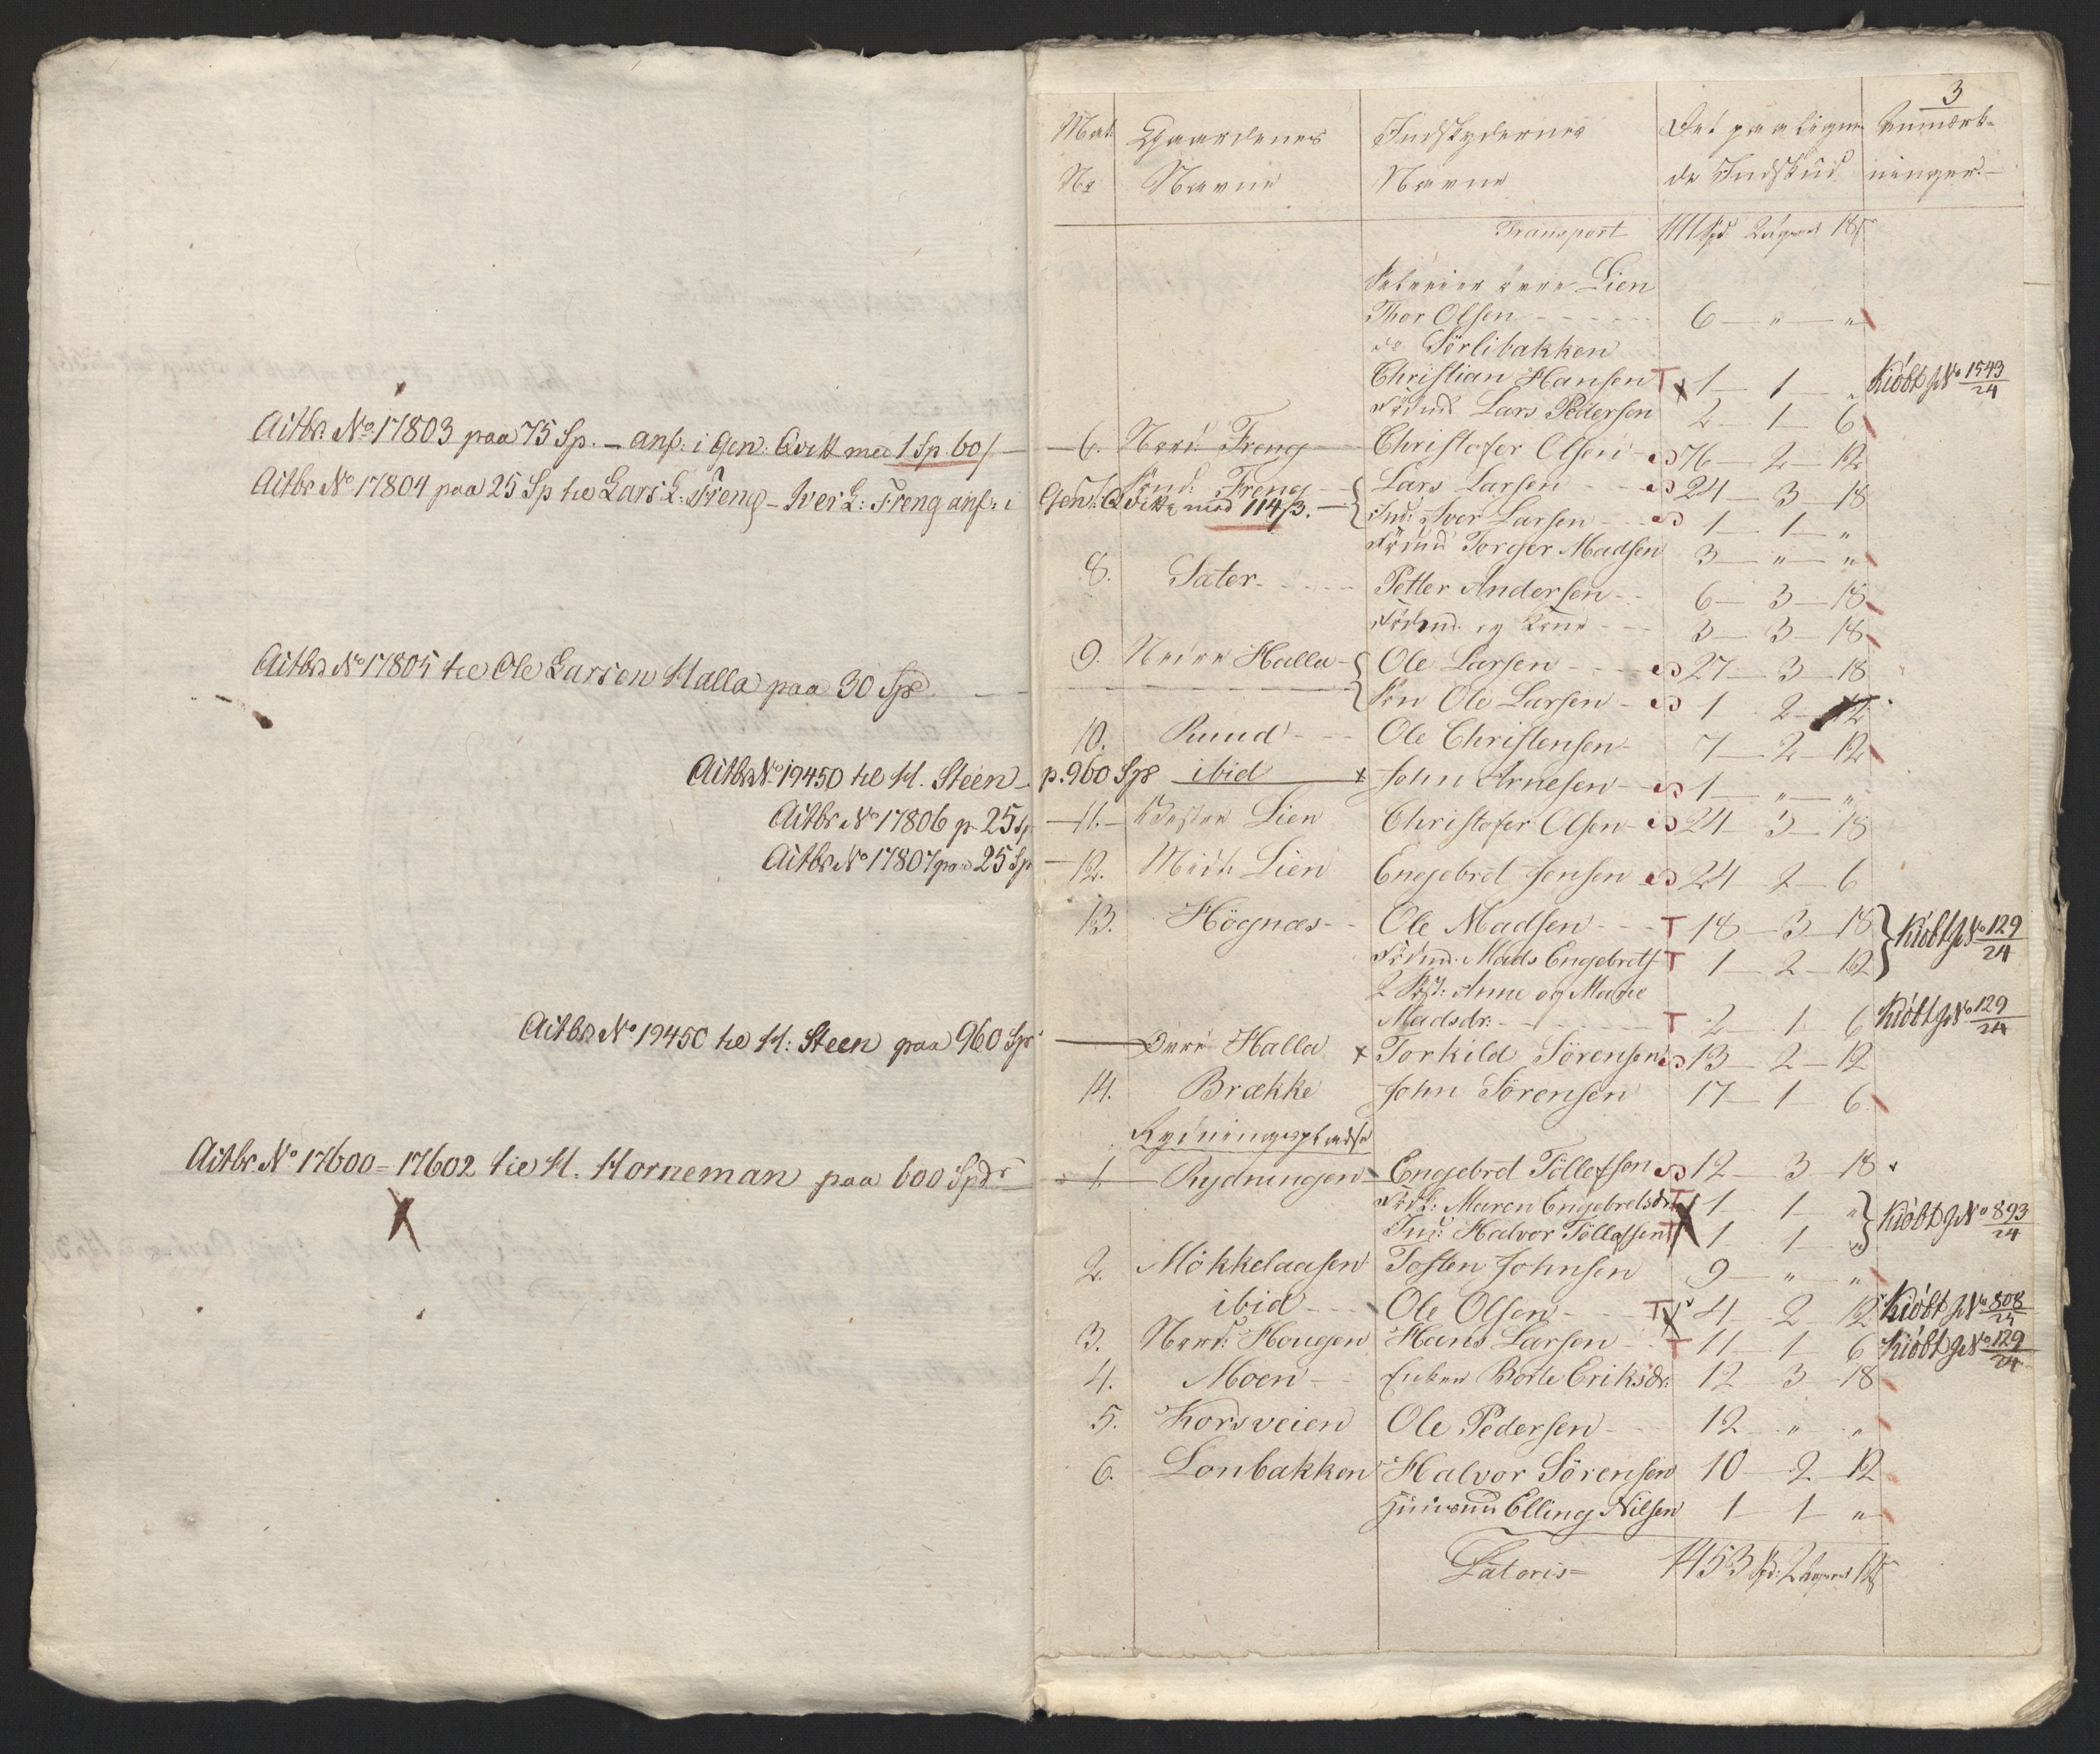 Actbr. No 17803 paa 75 Sp. - anf. i Gen. Qvitt med 1 Sp. 60 s
Actbr No 17804 paa 25 Sp til Lars L: Freng - Iver L: Freng anf: i
Actbr No 17805 til Ole Larsen Halla paa 30 Spd
Actbr No 19450 til H. Steen
Actbr No 17806 p 25 Sp
Actbr No 17807 paa 25 Sp
Actbr No 19450 til H: Steen paa 960 Spd
Actbr. No 17600 = 17602 til H. Horneman paa 600 Spdr
X
3
Mat: Gaardenes Indskydernes Det paalign- Anmærk-
No Navne Navne de Indskud ninger.
Transport 1111 Spd 2 18 s
Lien
Thor Olsen 6 — " — "
do Sörlibakken
Christian Hansen T x 1 — 1 — " Kiöbt No 1543/24
Lars Pedersen 2 — 1 — 6
6. Nerd: Freng Christofer Olsen 76 — 2 — 12
Sönd: Freng { Lars Larsen 24 — 3 — 18
Gen: Qvitt med 114 s. Ind: Iver Larsen 1 — 1 — "
Torger Madsen 3 — " — "
8. Sater Petter Andersen 6 — 3 — 18
og Kone 3 — 3 — 18
9. Nedre Halla { Ole Larsen 27 — 3 — 18
Sön Ole Larsen 1 2 — 12
10. Ruud Ole Christensen 7 — 2 — 12
p. 960 Spd ibid x John Arnesen 1 — " — "
11. Vestre Lien Christofer Olsen 24 — 3 — 18
12. Midt Lien Engebret Jensen 24 — 2 — 6
13. Högnæs Ole Madsen T 18 — 3 — 18 } Kiöbt No 129/24
Mads Engebrets T 1 — 2 — 12
2 Anne og Marie
Madsdr: T 2 — 1 — 6 Kiöbt No 129/24
Övre Halla x Torkild Sörensen 13 — 2 — 12
14. Brække John Sörensen 17 — 1 — 6
Rydningspladse
1. Rydningen Engebret Tollefsen 12 — 3 — 18
Maren Engebretsdr T 1 — 1 — " } Kiöbt No 893/24
Ind: Halvor Tollefsen T 1 — 1 — "
2. Mökkelaasen Tosten Johnsen 9 — " — "
ibid Ole Olsen T x 4 — 2 — 12 Kiöbt No 808/24
3. Nerd: Hougen Hans Larsen T 11 — 1 — 6 Kiöbt No 129/24
4. Moen Enken Borte Eriksdr: 12 — 3 — 18
5. Korsveien Ole Pedersen 12 " "
6. Lonbakken Halvor Sörensen 10 — 2 — 12
Huusmd Elling Nilsen 1 — 1 — "
Lateris 1453 Spd: 2 12 s